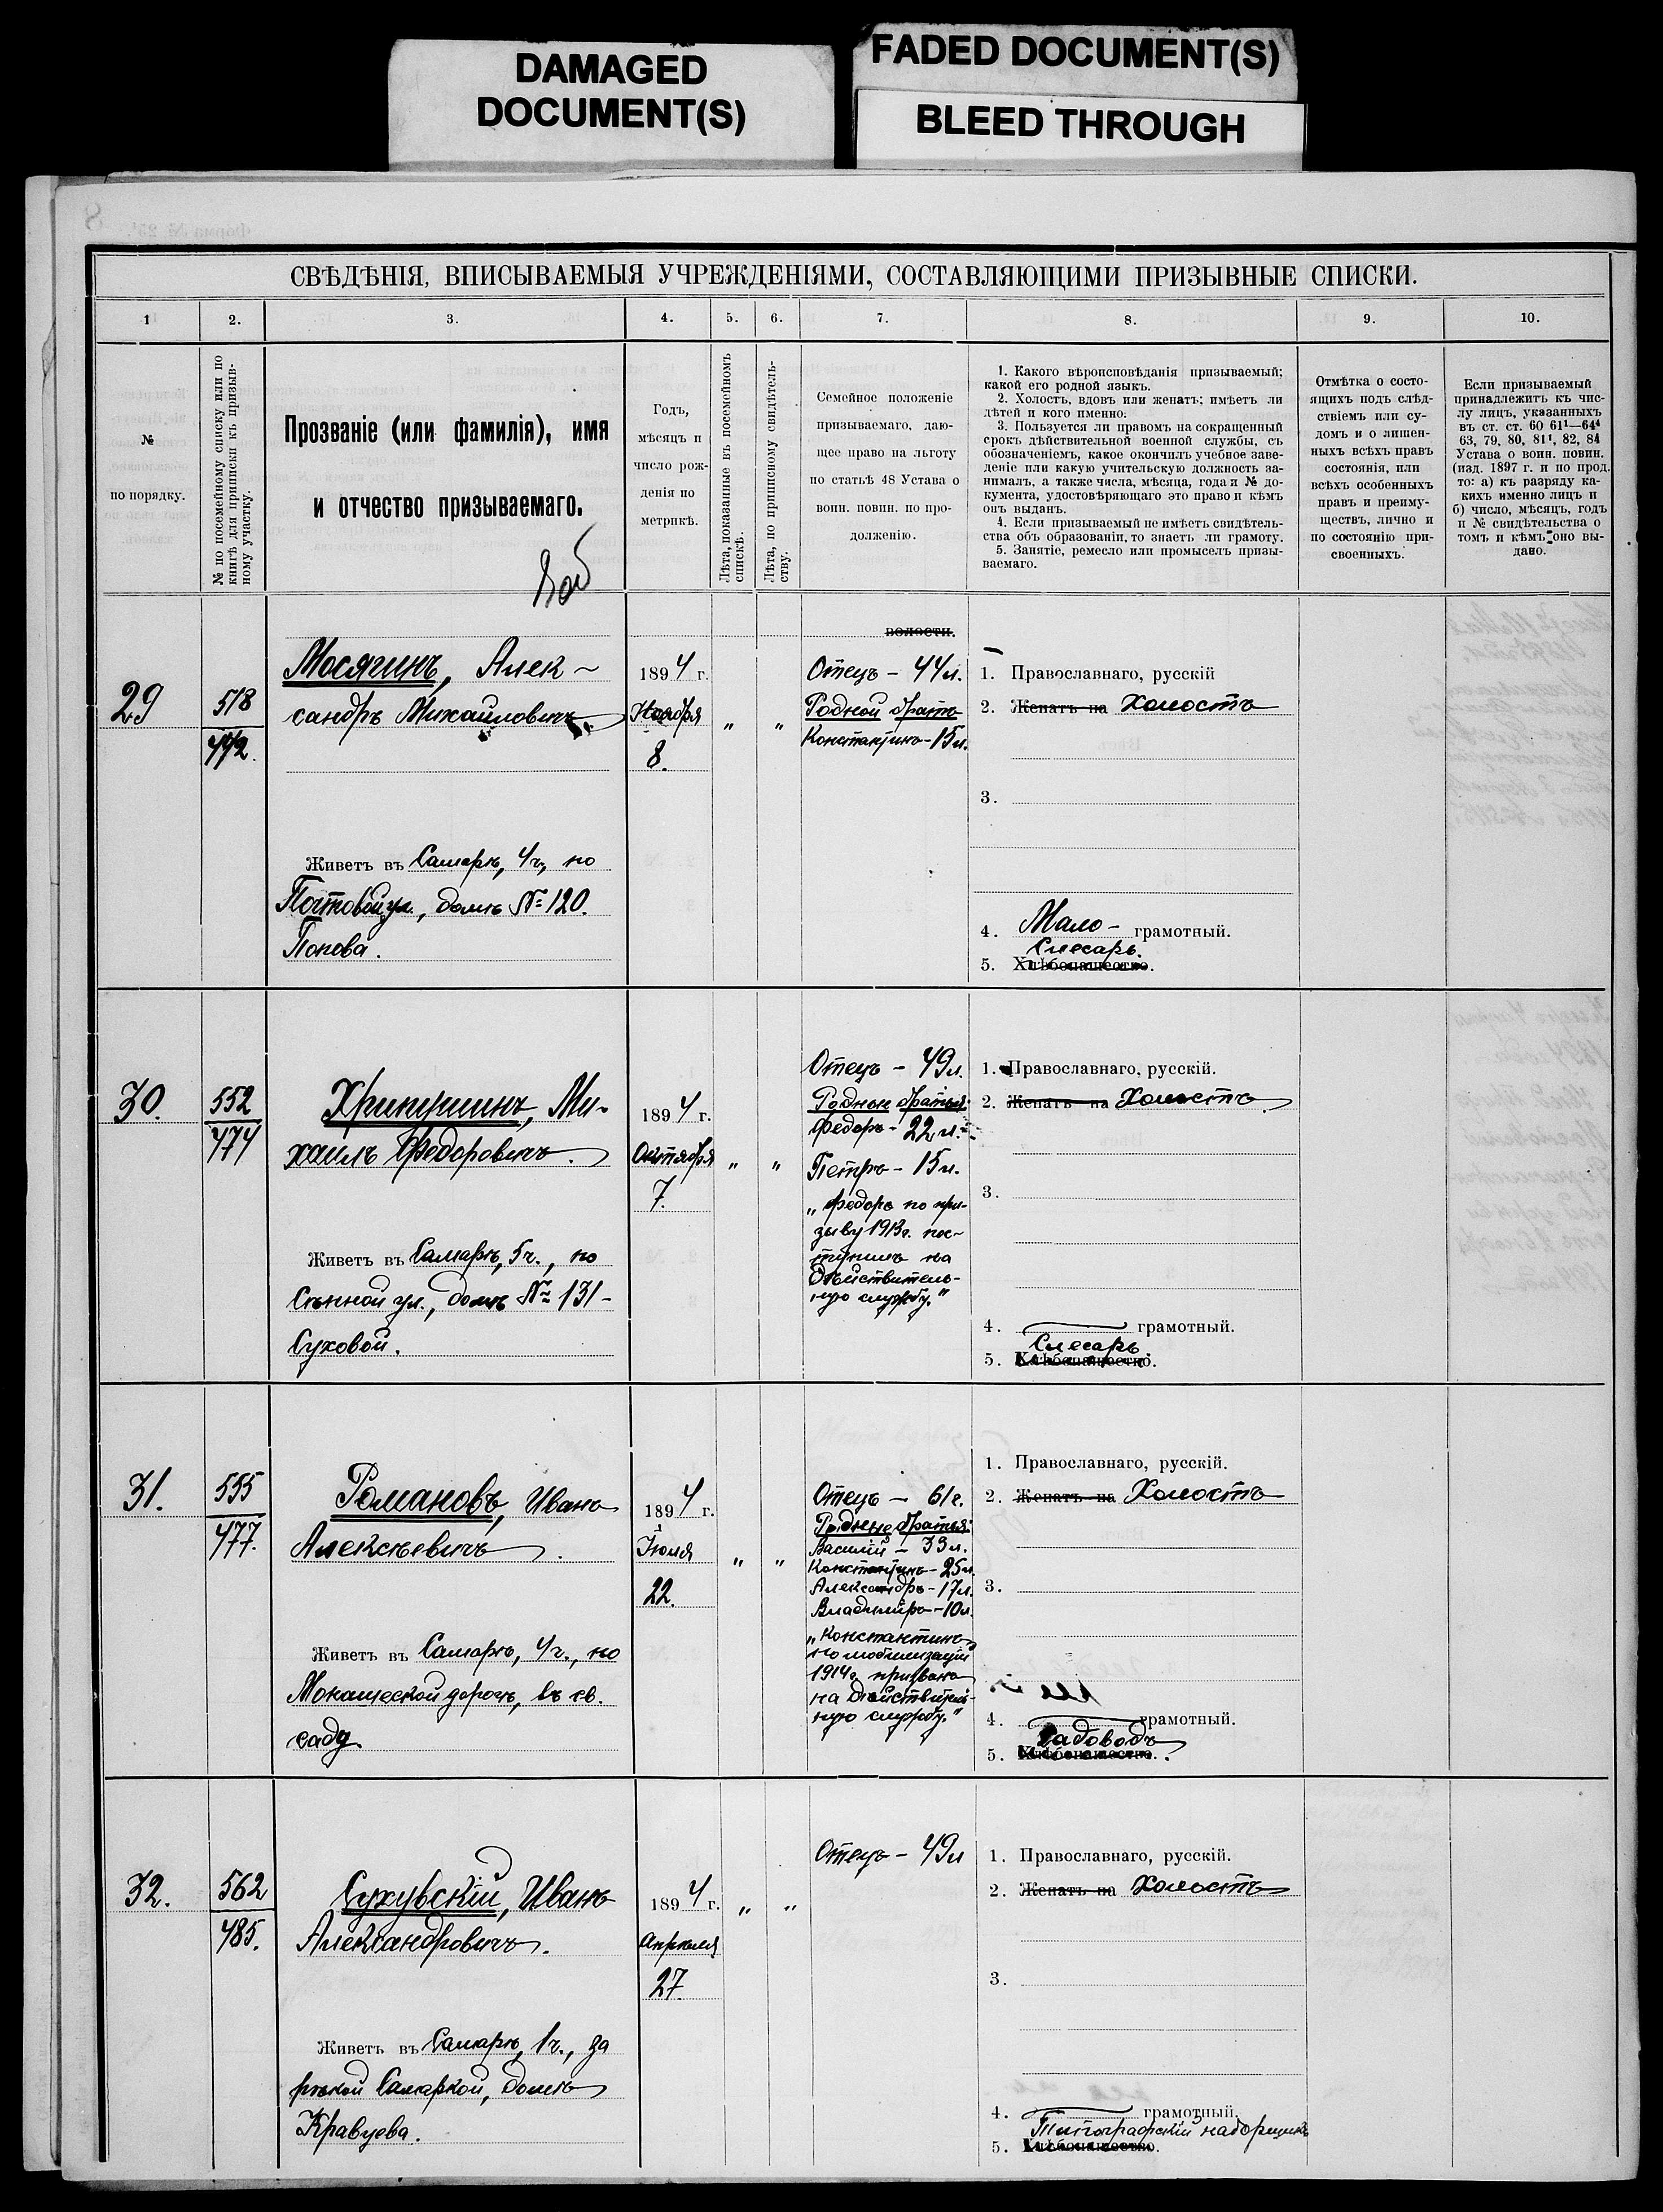 DAMAGED
DOCUMENT(S)
FADED DOCUMENT(S)
BLEED THROUGH
СВѢДѢНІЯ, ВПИСЫВАЕМЫЯ УЧРЕЖДЕНІЯМИ, СОСТАВЛЯЮЩИМИ ПРИЗЫВНЫЕ СПИСКИ.
1 2. 3. 4. 5. 6. 7. 8. 9. 10.
№
по порядку.
№ по посемейному списку или по
книгѣ для приписки къ призыв-
ному участку.
Прозваніе (или фамилія), имя
и отчество призываемаго.
Годъ,
мѣсяцъ и
число рож-
денія по
метрикѣ.
Лѣта, показанные въ посемейномъ
спискѣ.
Лѣта, по приписному свидѣтель-
ству.
Семейное положеніе
призываемаго, даю-
щее право на льготу
по статьѣ 48 Устава о
воин. повин. по про-
долженію.
1. Какого вѣроисповѣданія призываемый;
какой его родной языкъ.
2. Холостъ, вдовъ или женатъ; имѣетъ ли
дѣтей и кого именно.
3. Пользуется ли правомъ на сокращенный
срокъ дѣйствительной военной службы, съ
обозначеніемъ, какое окончилъ учебное заве-
деніе или какую учительскую должность за-
нималъ, а также числа, мѣсяца, года и № до-
кумента, удостовѣряющаго это право и кѣмъ
онъ выданъ.
4. Если призываемый не имѣетъ свидѣтель-
ства объ образованіи, то знаетъ ли грамоту.
5. Занятіе, ремесло или промыселъ призы-
ваемаго.
Отмѣтка о состо-
ящихъ подъ слѣд-
ствіемъ или су-
домъ и о лишен-
ныхъ всѣхъ правъ
состоянія, или
всѣхъ особенныхъ
правъ и преиму-
ществъ, лично и
по состоянію при-
своенныхъ.
Если призываемый
принадлежитъ къ чис-
лу лицъ, указанныхъ
въ ст. ст. 60 61¹—64⁴
63, 79, 80, 81¹, 82, 84
Устава о воин. повин.
(изд. 1897 г. и по прод.
то: а) къ разряду ка-
кихъ именно лицъ и
б) число, мѣсяцъ, годъ
и № свидѣтельства о
томъ и кѣмъ оно вы-
дано.
29
518
472.
Мосягинъ, Алек-
сандръ Михаиловичъ
Живетъ въ Самарѣ, 4 ч., по
Почтовой ул., домъ № 120.
Попова.
1894 г.
Ноября
8.
" "
волости.
Отецъ - 44 л.
Родной братъ
Константинъ - 15 л.
1. Православнаго, русскій
2. Женатъ на Холостъ
3.
4. Мало- грамотный.
Слесарь.
5. Хлѣбопашество.
30.
552
474
Хрипушинъ, Ми-
хаилъ Федоровичъ.
Живетъ въ Самарѣ, 5 ч., по
Сѣнной ул., домъ № 131 -
Суховой.
1894 г.
Октября
7.
" "
Отецъ - 49 л.
Родные братья:
Федоръ - 22 л.
Петръ - 15 л.
"Федоръ по при-
зыву 1913 г. пос-
тупилъ на
дѣйствитель-
ную службу."
1. Православнаго, русскій.
2. Женатъ на Холостъ
3.
4. грамотный.
Слесарь.
5. Хлѣбопашество.
31.
555
477.
Романовъ, Иванъ
Алексѣевичъ.
Живетъ въ Самарѣ, 4 ч., по
дорогѣ, въ св.
саду.
1894 г.
Іюля
22.
" "
Отецъ - 61 г.
Родные братья:
Василій - 33 л.
Константинъ - 25 л.
Александръ - 17 л.
Владиміръ - 10 л.
"Константинъ
по мобилизаціи
1914 г. призванъ
на дѣйствитель-
ную службу."
1. Православнаго, русскій.
2. Женатъ на Холостъ
3.
4. грамотный.
Садоводъ
5. Хлѣбопашество.
32.
562
485.
Сухувскій, Иванъ
Александровичъ.
Живетъ въ Самарѣ, 1 ч., за
рѣкой Самаркой, домъ
Кравцева.
1894 г.
Апрѣля
27.
" "
Отецъ - 49 л
1. Православнаго, русскій.
2. Женатъ на Холостъ
3.
4. грамотный.
Типографскій наборщикъ
5. Хлѣбопашество.